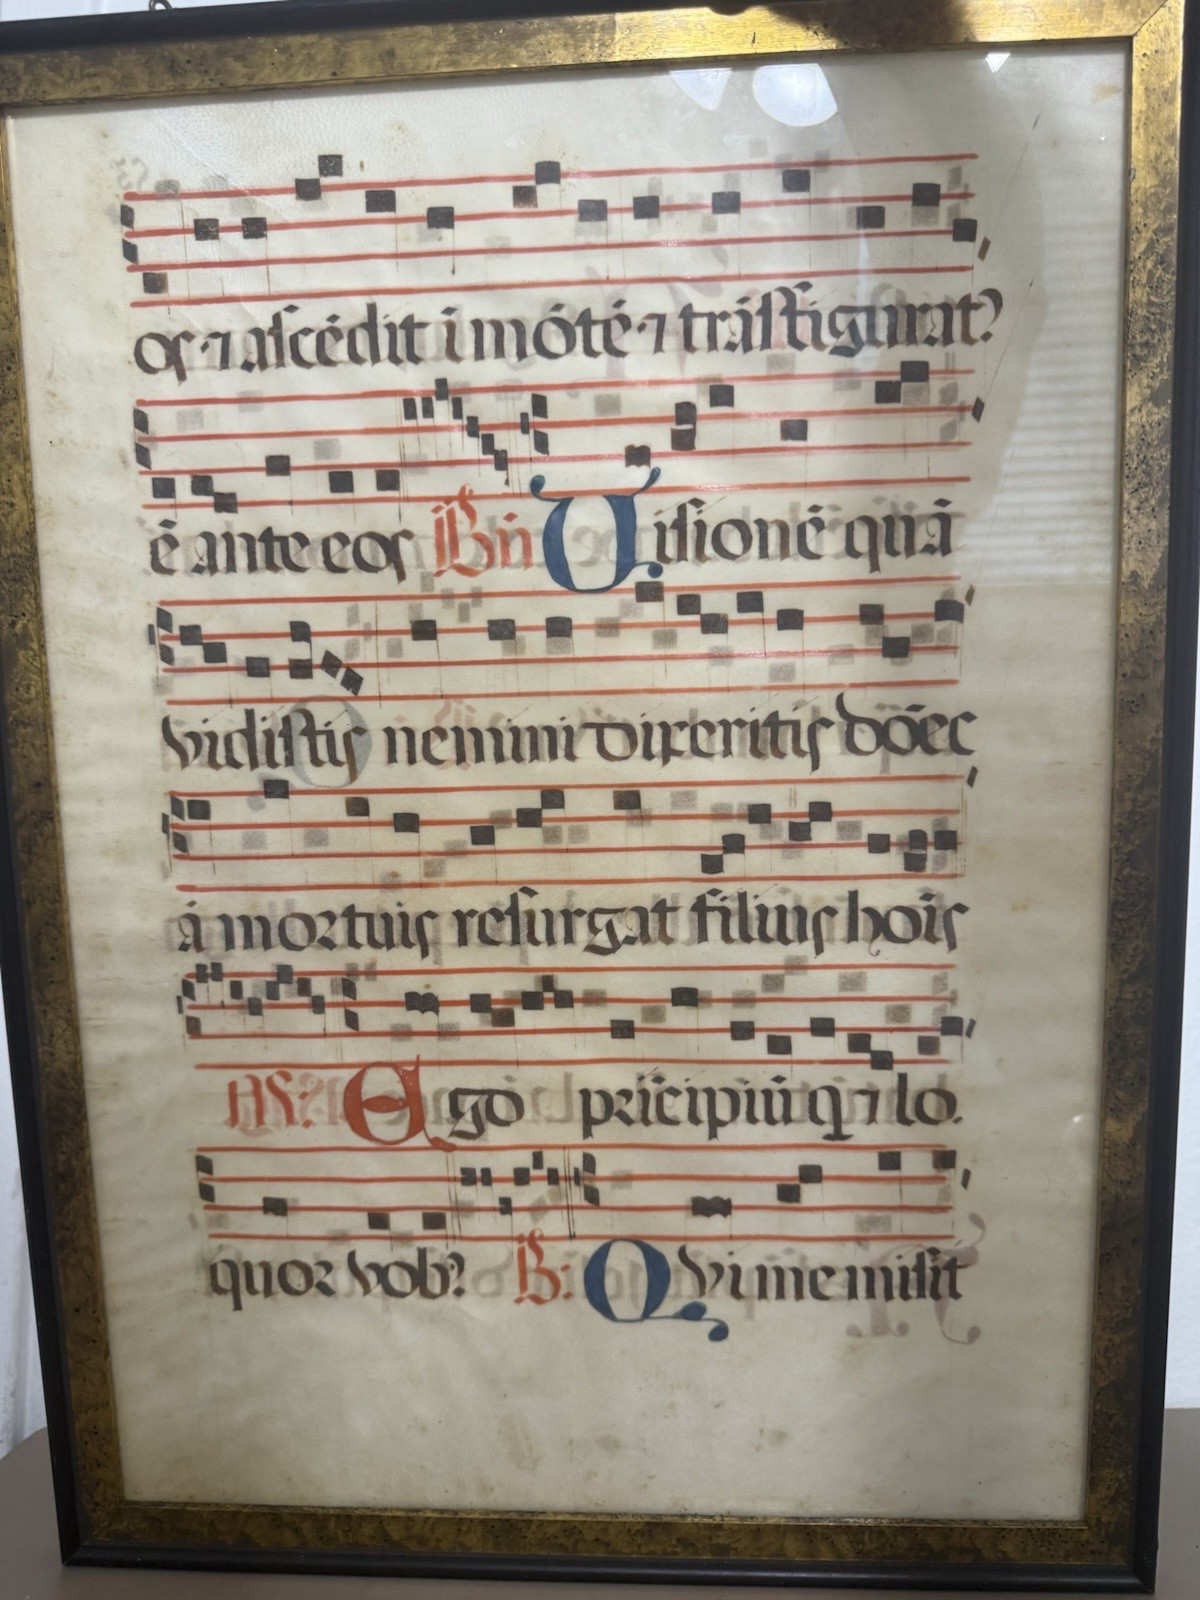 os ⁊ ascēdit ī mōtē ⁊ trāsfigurat᷒
ē ante eos Bñ Uisionē quā
vidistis nemini dixeritis dōec
á mortuis resurgat filius hoīs
Ego prīcipiū q ⁊ lo
quor vob᷒ B: Qvi me misit